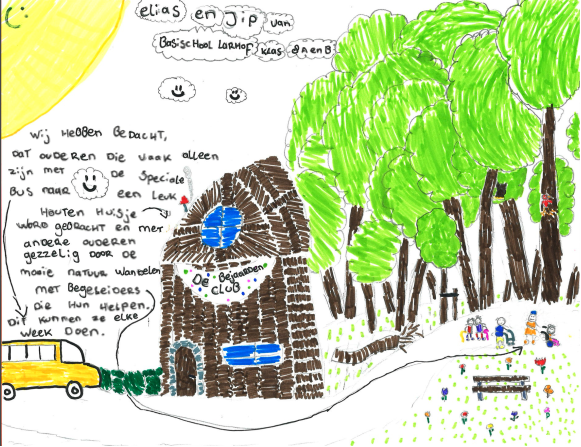 elias en Jip van
Basischool Larhof klas 8A en B
Wij HeBBen BeDacht,
DAT ouDeren Die vaak alleen
zijn met De Speciale
Bus naar een leuk
Houten Huisje
word gebracht en met
andere ouderen
gezzelig Door De
mooie natuur wandelen
met Begeleiders
Die Hun Helpen.
Dit kunnen ze elke
week Doen.
De Bejaarden
CLUB